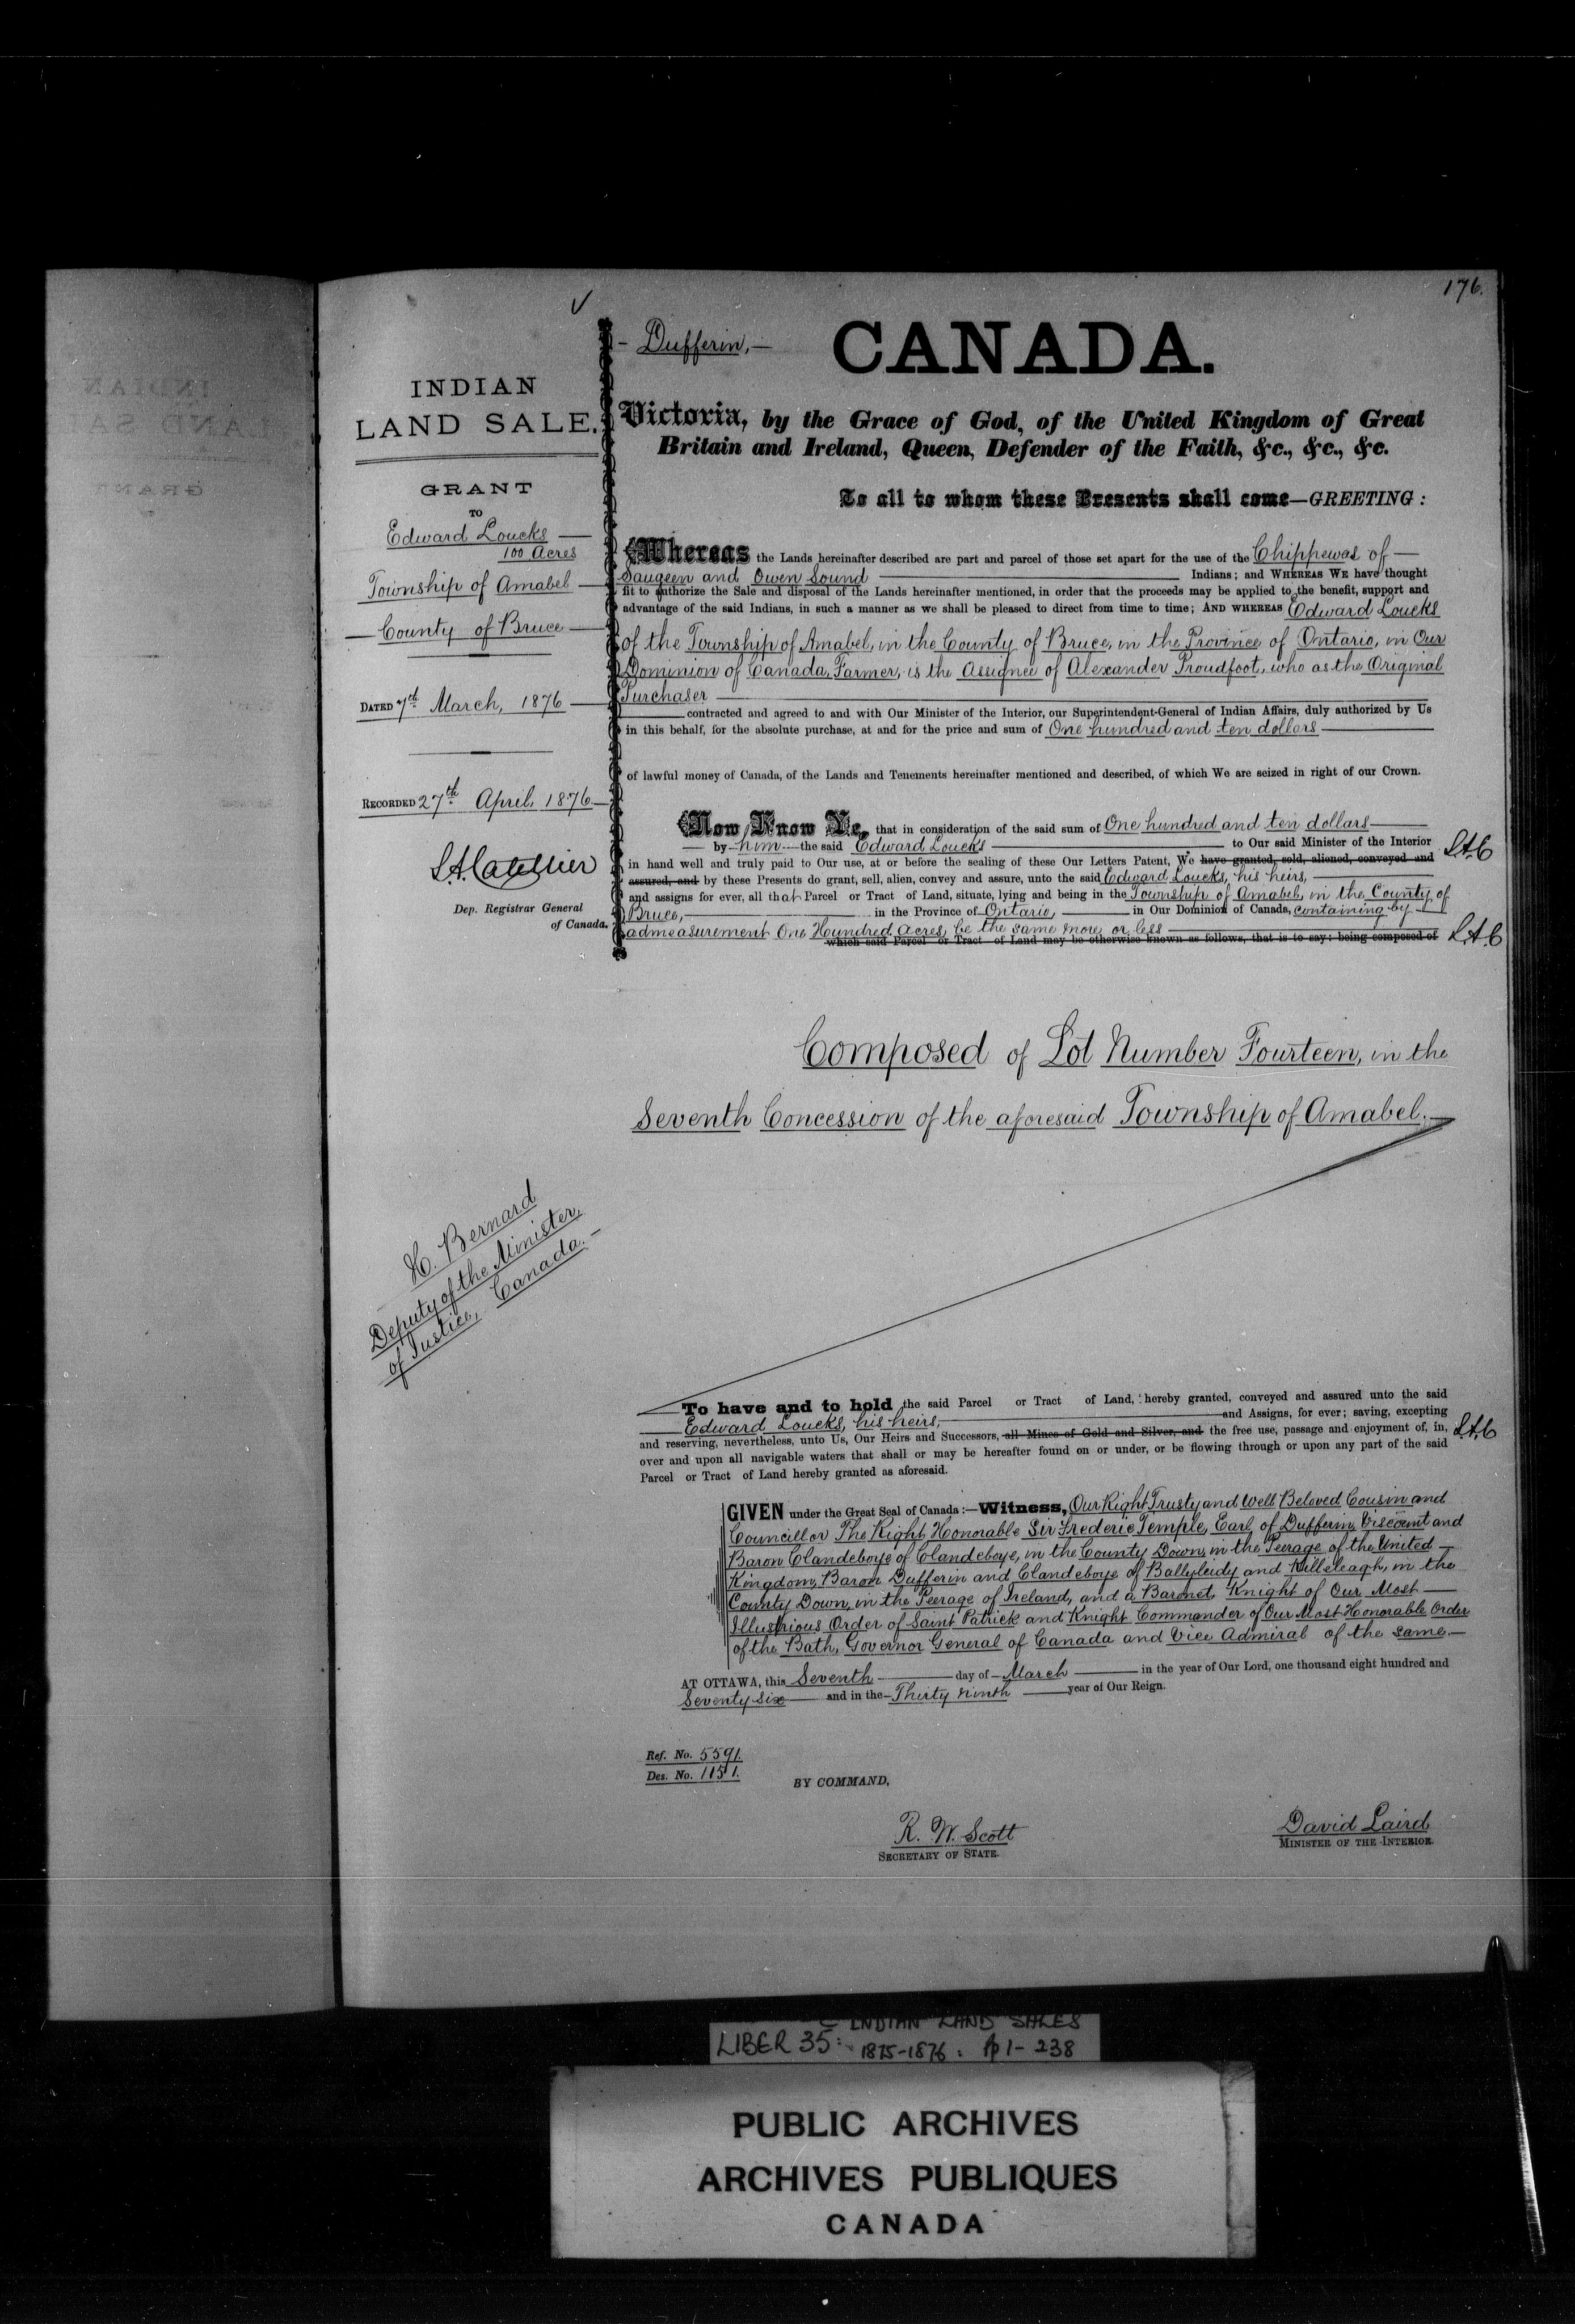 176.
- Dufferin, -
CANADA.
INDIAN
LAND SALE.
GRANT
TO
Edward Loucks
100 Acres
Township of Amabel
County of Bruce
DATED 7th March, 1876
RECORDED 27th April, 1876
L.A. Catellier
Dep. Registrar General
of Canada.
H. Bernard
Deputy of the Minister
of Justice, Canada.
Victoria, by the Grace of God, of the United Kingdom of Great
Britain and Ireland, Queen, Defender of the Faith, &c., &c., &c.
To all to whom these Presents shall come—GREETING:
Whereas the Lands hereinafter described are part and parcel of those set apart for the use of the Chippewas of
Saugeen and Owen Sound Indians; and WHEREAS WE have thought
fit to authorize the Sale and disposal of the Lands hereinafter mentioned, in order that the proceeds may be applied to the benefit, support and
advantage of the said Indians, in such a manner as we shall be pleased to direct from time to time; AND WHEREAS Edward Loucks
of the Township of Amabel, in the County of Bruce, in the Province of Ontario, in Our
Dominion of Canada, Farmer, is the Assignee of Alexander Proudfoot, who as the Original
Purchaser
contracted and agreed to and with Our Minister of the Interior, our Superintendent-General of Indian Affairs, duly authorized by Us
in this behalf, for the absolute purchase, at and for the price and sum of One hundred and ten dollars
of lawful money of Canada, of the Lands and Tenements hereinafter mentioned and described, of which We are seized in right of our Crown.
Now Know Ye, that in consideration of the said sum of One hundred and ten dollars
by him the said Edward Loucks to Our said Minister of the Interior
in hand well and truly paid to Our use, at or before the sealing of these Our Letters Patent, We have granted, sold, aliened, conveyed and L.A.C
assured, and by these Presents do grant, sell, alien, convey and assure, unto the said Edward Loucks, his heirs,
and assigns for ever, all that Parcel or Tract of Land, situate, lying and being in the Township of Amabel, in the County of
Bruce, in the Province of Ontario, in Our Dominion of Canada, containing by
admeasurement One Hundred Acres, be the same more or less
which said Parcel or Tract of Land may be otherwise known as follows, that is to say: being composed of L.A.C
Composed of Lot Number Fourteen, in the
Seventh Concession of the aforesaid Township of Amabel.
To have and to hold the said Parcel or Tract of Land, hereby granted, conveyed and assured unto the said
Edward Loucks, his heirs, and Assigns, for ever; saving, excepting
and reserving, nevertheless, unto Us, Our Heirs and Successors, all Mines of Gold and Silver, and the free use, passage and enjoyment of, in, L.A.C
over and upon all navigable waters that shall or may be hereafter found on or under, or be flowing through or upon any part of the said
Parcel or Tract of Land hereby granted as aforesaid.
GIVEN under the Great Seal of Canada:—Witness, Our Right Trusty and Well Beloved Cousin and
Councillor The Right Honorable Sir Frederic Temple, Earl of Dufferin, Viscount and
Baron Clandeboye of Clandeboye, in the County Down, in the Peerage of the United
Kingdom, Baron Dufferin and Clandeboye of Ballyleidy and Killeleagh, in the
County Down, in the Peerage of Ireland, and a Baronet, Knight of Our Most
Illustrious Order of Saint Patrick and Knight Commander of Our Most Honorable Order
of the Bath, Governor General of Canada and Vice Admiral of the same
AT OTTAWA, this Seventh day of March in the year of Our Lord, one thousand eight hundred and
Seventy six and in the Thirty ninth year of Our Reign.
Ref. No. 5591.
Des. No. 1151.
BY COMMAND,
R. W. Scott
SECRETARY OF STATE.
David Laird
MINISTER OF THE INTERIOR.
INDIAN LAND SALES
LIBER 35: 1875-1876: pp 1-238
PUBLIC ARCHIVES
ARCHIVES PUBLIQUES
CANADA